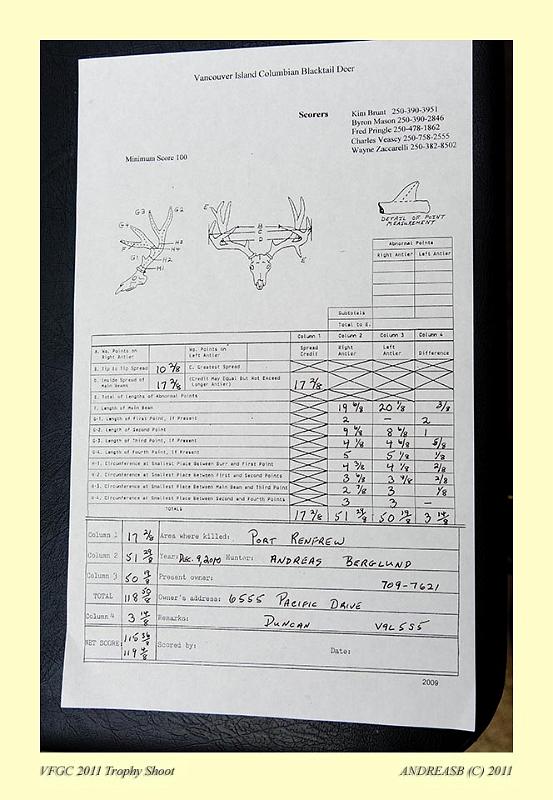 Vancouver Island Columbian Blacktail Deer
Scorers
Kim Brunt 250-390-3951
Byron Mason 250-390-2846
Fred Pringle 250-478-1862
Charles Veasey 250-758-2555
Wayne Zaccarelli 250-382-8502
Minimum Score 100
DETAIL OF POINT MEASUREMENT
Abnormal Points
Right Antler Left Antler
Subtotals
Total to E.
Column 1 Column 2 Column 3 Column 4
A. No. Points on Right Antler No. Points on Left Antler Spread Credit Right Antler Left Antler Difference
B. Tip to Tip Spread 10 2/8 C. Greatest Spread
D. Inside Spread of Main Beams 17 2/8 (Credit May Equal But Not Exceed Longer Antler) 17 2/8
E. Total of Lengths of Abnormal Points
F. Length of Main Beam 19 6/8 20 1/8 3/8
G-1. Length of First Point, If Present 2 – 2
G-2. Length of Second Point 9 6/8 8 6/8 1
G-3. Length of Third Point, If Present 4 1/8 4 6/8 5/8
G-4. Length of Fourth Point, If Present 5 5 1/8 1/8
H-1. Circumference at Smallest Place Between Burr and First Point 4 3/8 4 1/8 2/8
H-2. Circumference at Smallest Place Between First and Second Points 3 3/8
H-3. Circumference at Smallest Place Between Main Beam and Third Point 2 7/8 3 1/8
H-4. Circumference at Smallest Place Between Second and Fourth Points 3 3 –
TOTALS 17 2/8 51 50 3 14/8
Column 1 17 2/8 Area where killed: PORT RENFREW
Column 2 51 Year: DEC. 9, 2010 Hunter: ANDREAS BERGLUND
Column 3 50 Present owner: 709-7621
TOTAL 118 Owner's address: 6555 PACIFIC DRIVE
Column 4 3 14/8 Remarks: DUNCAN V9L 5S5
NET SCORE: 115 36/8 Scored by: Date:
119 4/8
2009
VFGC 2011 Trophy Shoot
ANDREASB (C) 2011